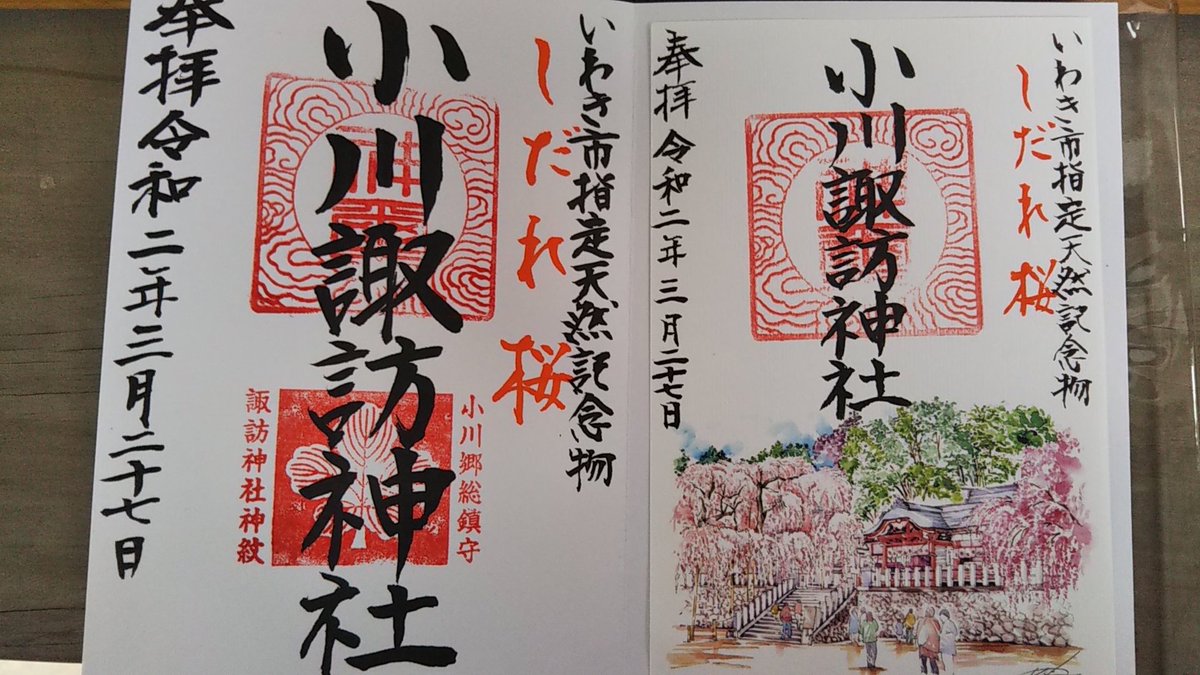 いわき市指定天然記念物
しだれ桜
小川諏訪神社
奉拝令和二年三月二十七日
小川郷総鎮守
諏訪神社神紋
いわき市指定天然記念物
しだれ桜
小川諏訪神社
奉拝令和二年三月二十七日